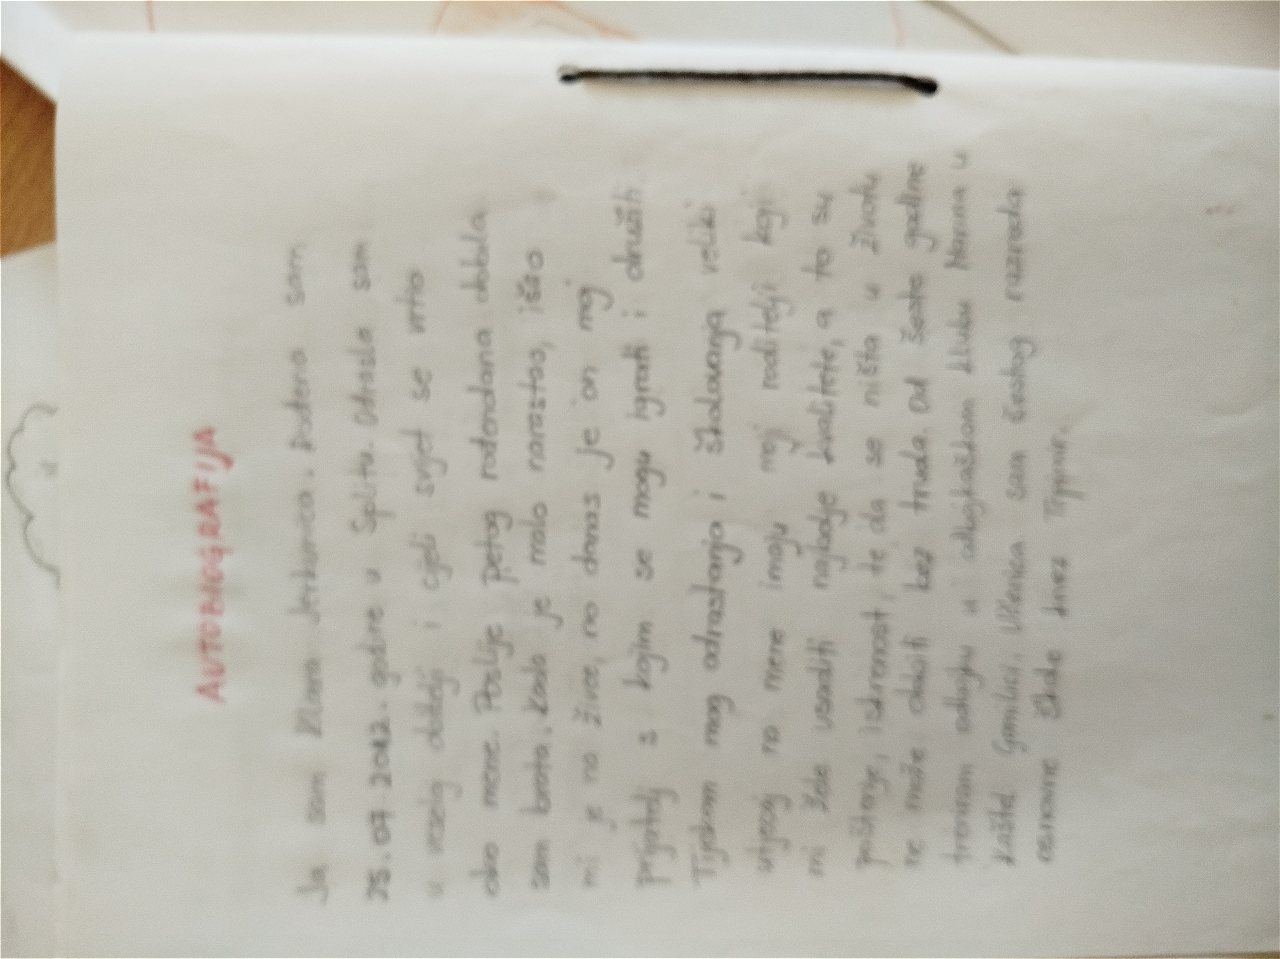 AUTOBIOGRAFIJA
Ja sam Klara. Rođena sam
25.07.2012. godine u Splitu. Odrasla sam
u obitelji i cijeli svijet se vrtio
oko mene. Poslije petog rođendana dobila
sam brata. Kada je malo narastao, išao
mi je na živce, no danas je on moj
prijatelj s kojim se mogu igrati i družiti.
Tijekom mog odrastanja i školovanja veliki
utjecaj na mene imaju moji roditelji koji
mi žele usaditi najbolje kvalitete, a to su
poštenje, iskrenost, te da se ništa u životu
ne može dobiti bez truda. Od šeste godine
treniram odbojku u odbojkaškom klubu Marina u
Kaštel Gomilici. Učenica sam šestog razreda
osnovne škole knez Trpimir.